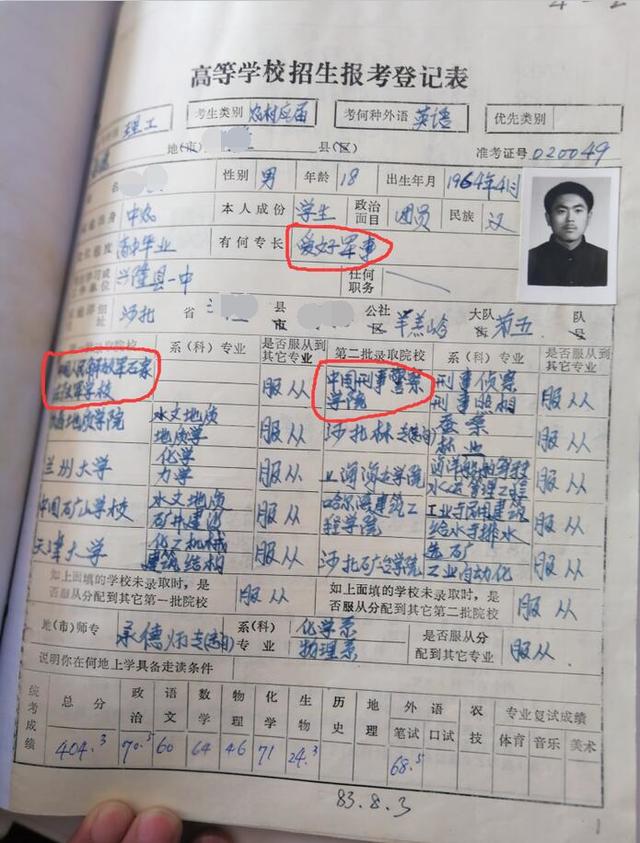 高等学校招生报考登记表
理工 考生类别 农村应届 考何种外语 英语 优先类别
地(市) 县(区) 准考证号 020049
性别 男 年龄 18 出生年月 1964年4月
中农 本人成份 学生 政治面目 团员 民族 汉
高中毕业 有何专长 爱好军事
兴隆县一中 任何职务
河北 省 县 市 公社 区 羊羔岭 大队 街 第五 队 号
录取院校 系(科)专业 是否服从到其它专业 第二批录取院校 系(科)专业 是否服从到其它专业
中国人民解放军石家庄陆军学校 服从 中国刑事警察学院 刑事侦察 刑事照相 服从
地质学院 水文地质 地质学 服从 河北林专 蚕桑 林业 服从
兰州大学 化学 力学 服从 上海海运学院 水运管理工程 服从
中国矿山学校 水文地质 矿井建设 服从 哈尔滨建筑工程学院 工业与民用建筑 给水与排水 服从
天津大学 化工机械 建筑结构 服从 河北矿冶学院 选矿 工业自动化 服从
如上面填的学校未录取时,是否服从分配到其它第一批院校 服从 如上面填的学校未录取时,是否服从分配到其它第二批院校 服从
地(市)师专 承德师专 系(科)专业 化学系 物理系 是否服从分配到其它专业 服从
说明你在何地上学具备走读条件
统考成绩 总分 政治 语文 数学 物理 化学 生物 历史 地理 外语 农技 专业复试成绩
笔试 口试 体育 音乐 美术
404.3 70.5 60 64 46 71 24.3 68.5
83.8.3
1